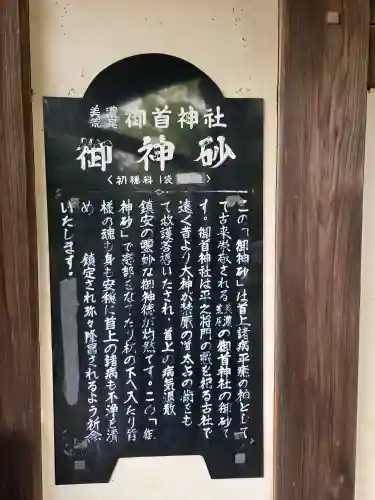 美濃
荒尾
御首神社
御神砂
〈初穂料1袋
この「御神砂」は首上諸病平癒の祖として
て古来崇敬される美濃荒尾の御首神社の御砂で
す。御首神社は平之将門の霊を祀る古社で
遠く昔より大神が禁厭の道太占の術をも
て救護善導いたされ、首上の病気退散
鎮安の霊妙な御神徳が灼然です。この「御
神砂」で患部をなでたり枕の下へ入れたり皆
様の魂も身も安穏に首上の諸病も不浄を清
め
鎮定され弥々隆昌されるよう祈念
いたします。